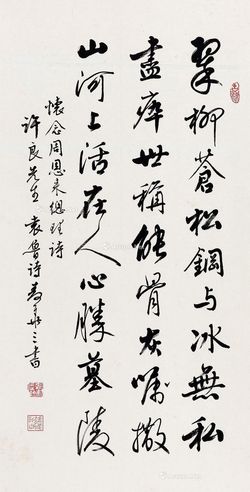 翠柳苍松鋼与冰無私
盡瘁世稱能骨灰嘱撒
山河上活在人心勝墓陵
懷念周恩来總理诗
许良先生 袁鲁诗 寿
书